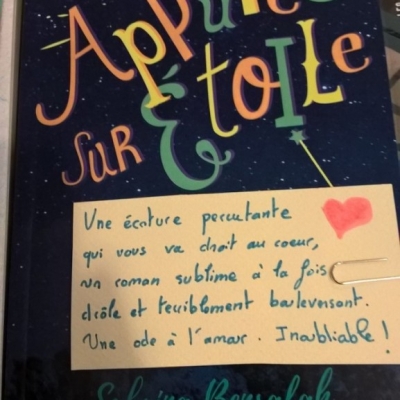 Appuie
sur Étoile
Une écriture percutante
qui vous va droit au coeur,
un roman sublime à la fois
drôle et terriblement bouleversant.
Une ode à l'amour. Inoubliable !
Sabrina Bensalah